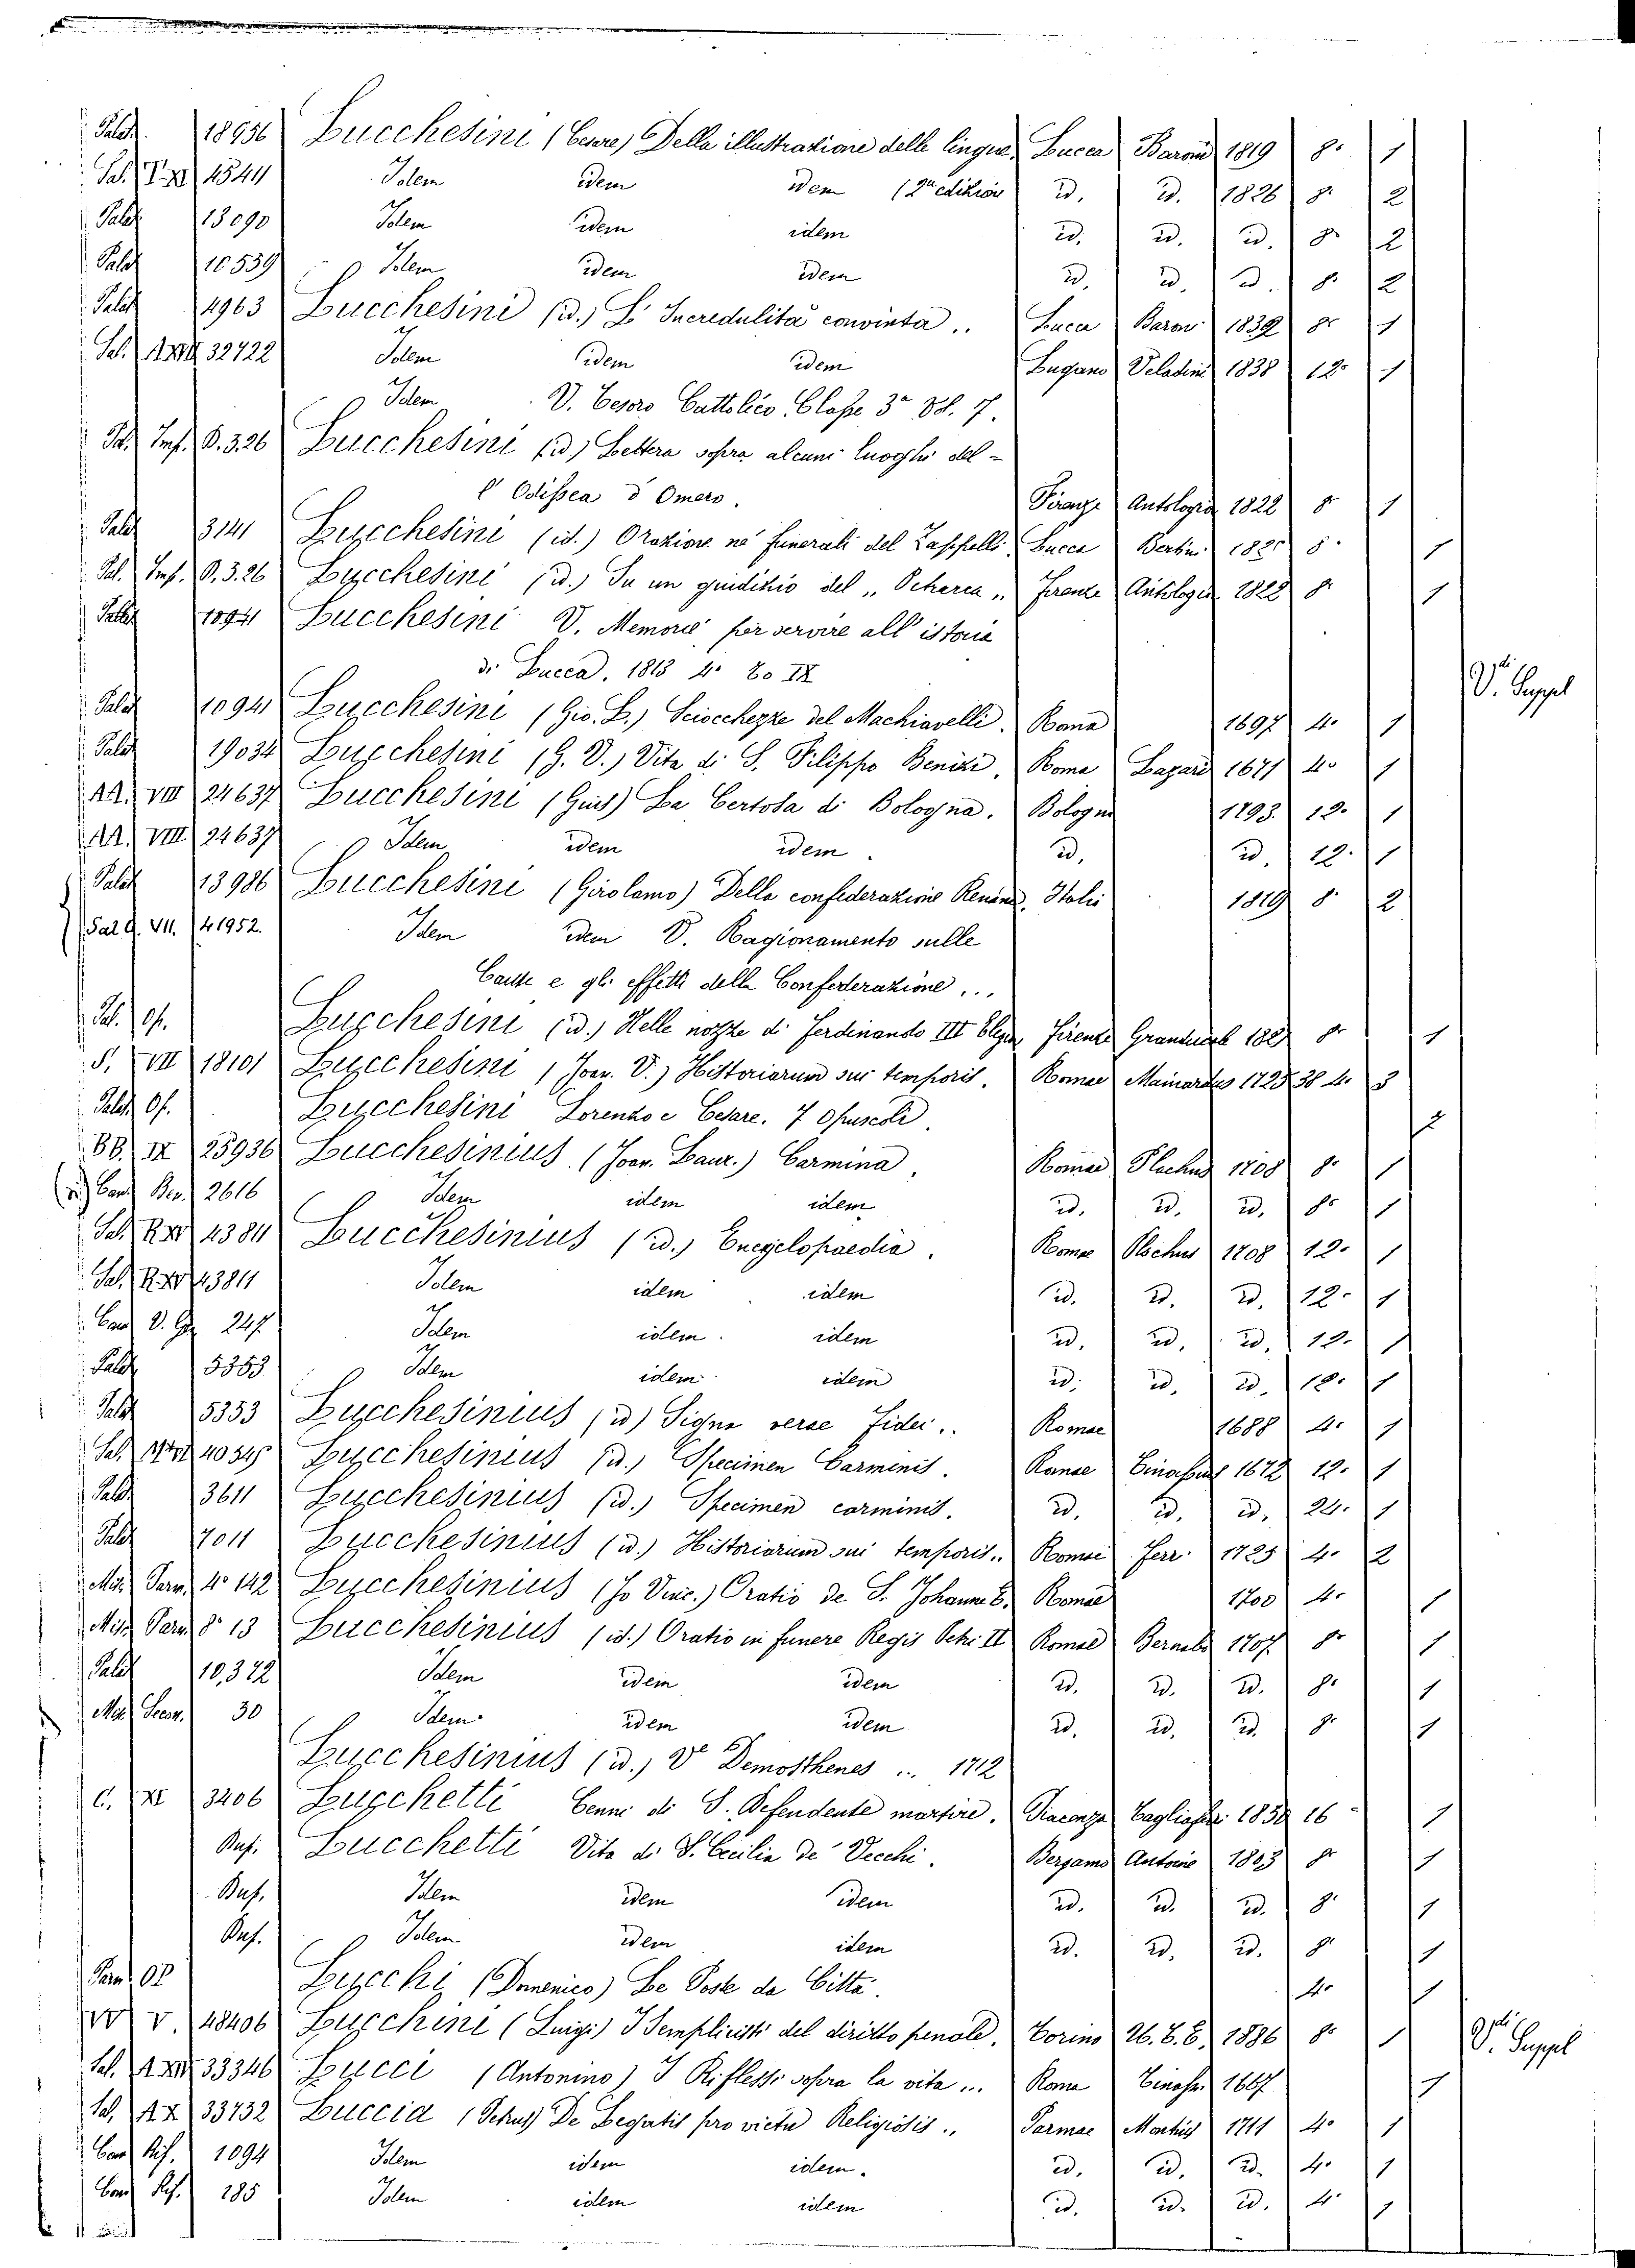 Palat. 18956 Lucchesini (Cesare) Della illustrazione delle lingue, Lucca Baroni 1819 8° 1
Sal. 4544 Idem idem idem (2a edizione id. id. 1826 8° 2
Palat 13090 Idem idem idem id. id. id. 8° 2
Palat 10539 Idem idem idem id. id. id. 8° 2
Palat 4963 Lucchesini (id.) L' Incredulità convinta .. Lucca Baroni 1839 8° 1
Sal. 32722 Idem idem idem Lugano Veladini 1838 12° 1
Idem V. Tesoro Cattolico Classe 3a Vol. 7.
Pal. Inf. B.3.26 Lucchesini (id) Lettera sopra alcuni luoghi del-
l' Odissea d' Omero. Firenze Antologia 1822 8° 1
Palat 3141 Lucchesini (id.) Orazione ne' funerali del Lucca Bertini 8° 1
Pal. Inf. B.3.26 Lucchesini (id.) Su un giudizio del Firenze Antologia 1822 8° 1
Palat 10941 Lucchesini V. Memorie per servire all' istoria
di Lucca. 1813 4° To IX
Palat 10941 Lucchesini (Gio. L.) Sciocchezze del Machiavelli. Roma 1697 4° 1
V.di Suppel
Palat 19034 Lucchesini (G. V.) Vita di S. Filippo Benizi, Roma 1671 4° 1
AA. VIII 24637 Lucchesini (Gius) La Certosa di Bologna. Bologna 12° 1
AA. VIII 24637 Idem idem idem. id. id. 12° 1
Palat 13986 Lucchesini (Girolamo) Della confederazione Renana, Italia 1819 8° 2
Sal G. VII. 41952. Idem idem V. Ragionamento sulle
Cause e gli effetti della Confederazione ...
Pal. Op. Lucchesini (id.) Nelle nozze di Ferdinando III Firenze 8° 1
S. VII 18101 Lucchesini (Joan. V.) Historiarum sui temporis. Romae Mainardus 1725 38 4° 3
Palat Op. Lucchesini Lorenzo e Cesare. 7 Opuscoli.
BB. IX 25936 Lucchesinius. (Joan. Laur.) Carmina, Romae 1708 8° 1
2616 Idem idem idem id. id. id. 8° 1
Sal. 4384 Lucchesinius (id.) Encyclopaedia. Romae 1708 12° 1
Sal. Idem idem idem id. id. id. 12° 1
247 Idem idem. idem id. id. id. 12° 1
Palat 5353 Idem idem idem id. id. id. 12° 1
Palat 5353 Lucchesinius (id) Signa verae Fidei .. Romae 1688 4° 1
Sal. Lucchesinius (id.) Specimen Carminis. Romae 1672 12° 1
Palat 3611 Lucchesinius (id.) Specimen carminis. id. id. id. 24° 1
Palat 7011 Lucchesinius (id.) Historiarum sui temporis.. Romae Ferr. 1725 4° 2
Mis. 4° 142 Lucchesinius (Jo Vinc.) Oratio de S. Johanne E. Romae 1700 4° 1
Misc 8° 13 Lucchesinius (id.) Oratio in funere Regis Petri II Romae Bernabò 1707 8° 1
Palat 10,372 Idem idem idem id. id. id. 8° 1
30 Idem idem idem id. id. id. 8° 1
Lucchesinius (id.) Ve Demosthenes ... 1712
C. XI 3406 Lucchetti Cenni di S. Defendente martire. Piacenza 16° 1
Lucchetti Vita di S. Cecilia De' Vecchi. Bergamo Antoine 1803 8° 1
Idem idem idem id. id. id. 8° 1
Idem idem idem id. id. id. 8° 1
Lucchi (Domenico) Le Poste da Città. 4° 1
V. 48406 Lucchini (Luigi) I Semplicisti del diritto penale. Torino U. T. E. 1886 8° 1
V.di Suppel
Sal. 33346 Lucci (Antonino) I Riflessi sopra la vita ... Roma 1667 1
Sal. 33732 Luccia De Legatis pro victu Religiosis .. Parmae 1711 4° 1
1094 Idem idem idem. id. id. id. 4° 1
185 Idem idem idem id. id. id. 4° 1